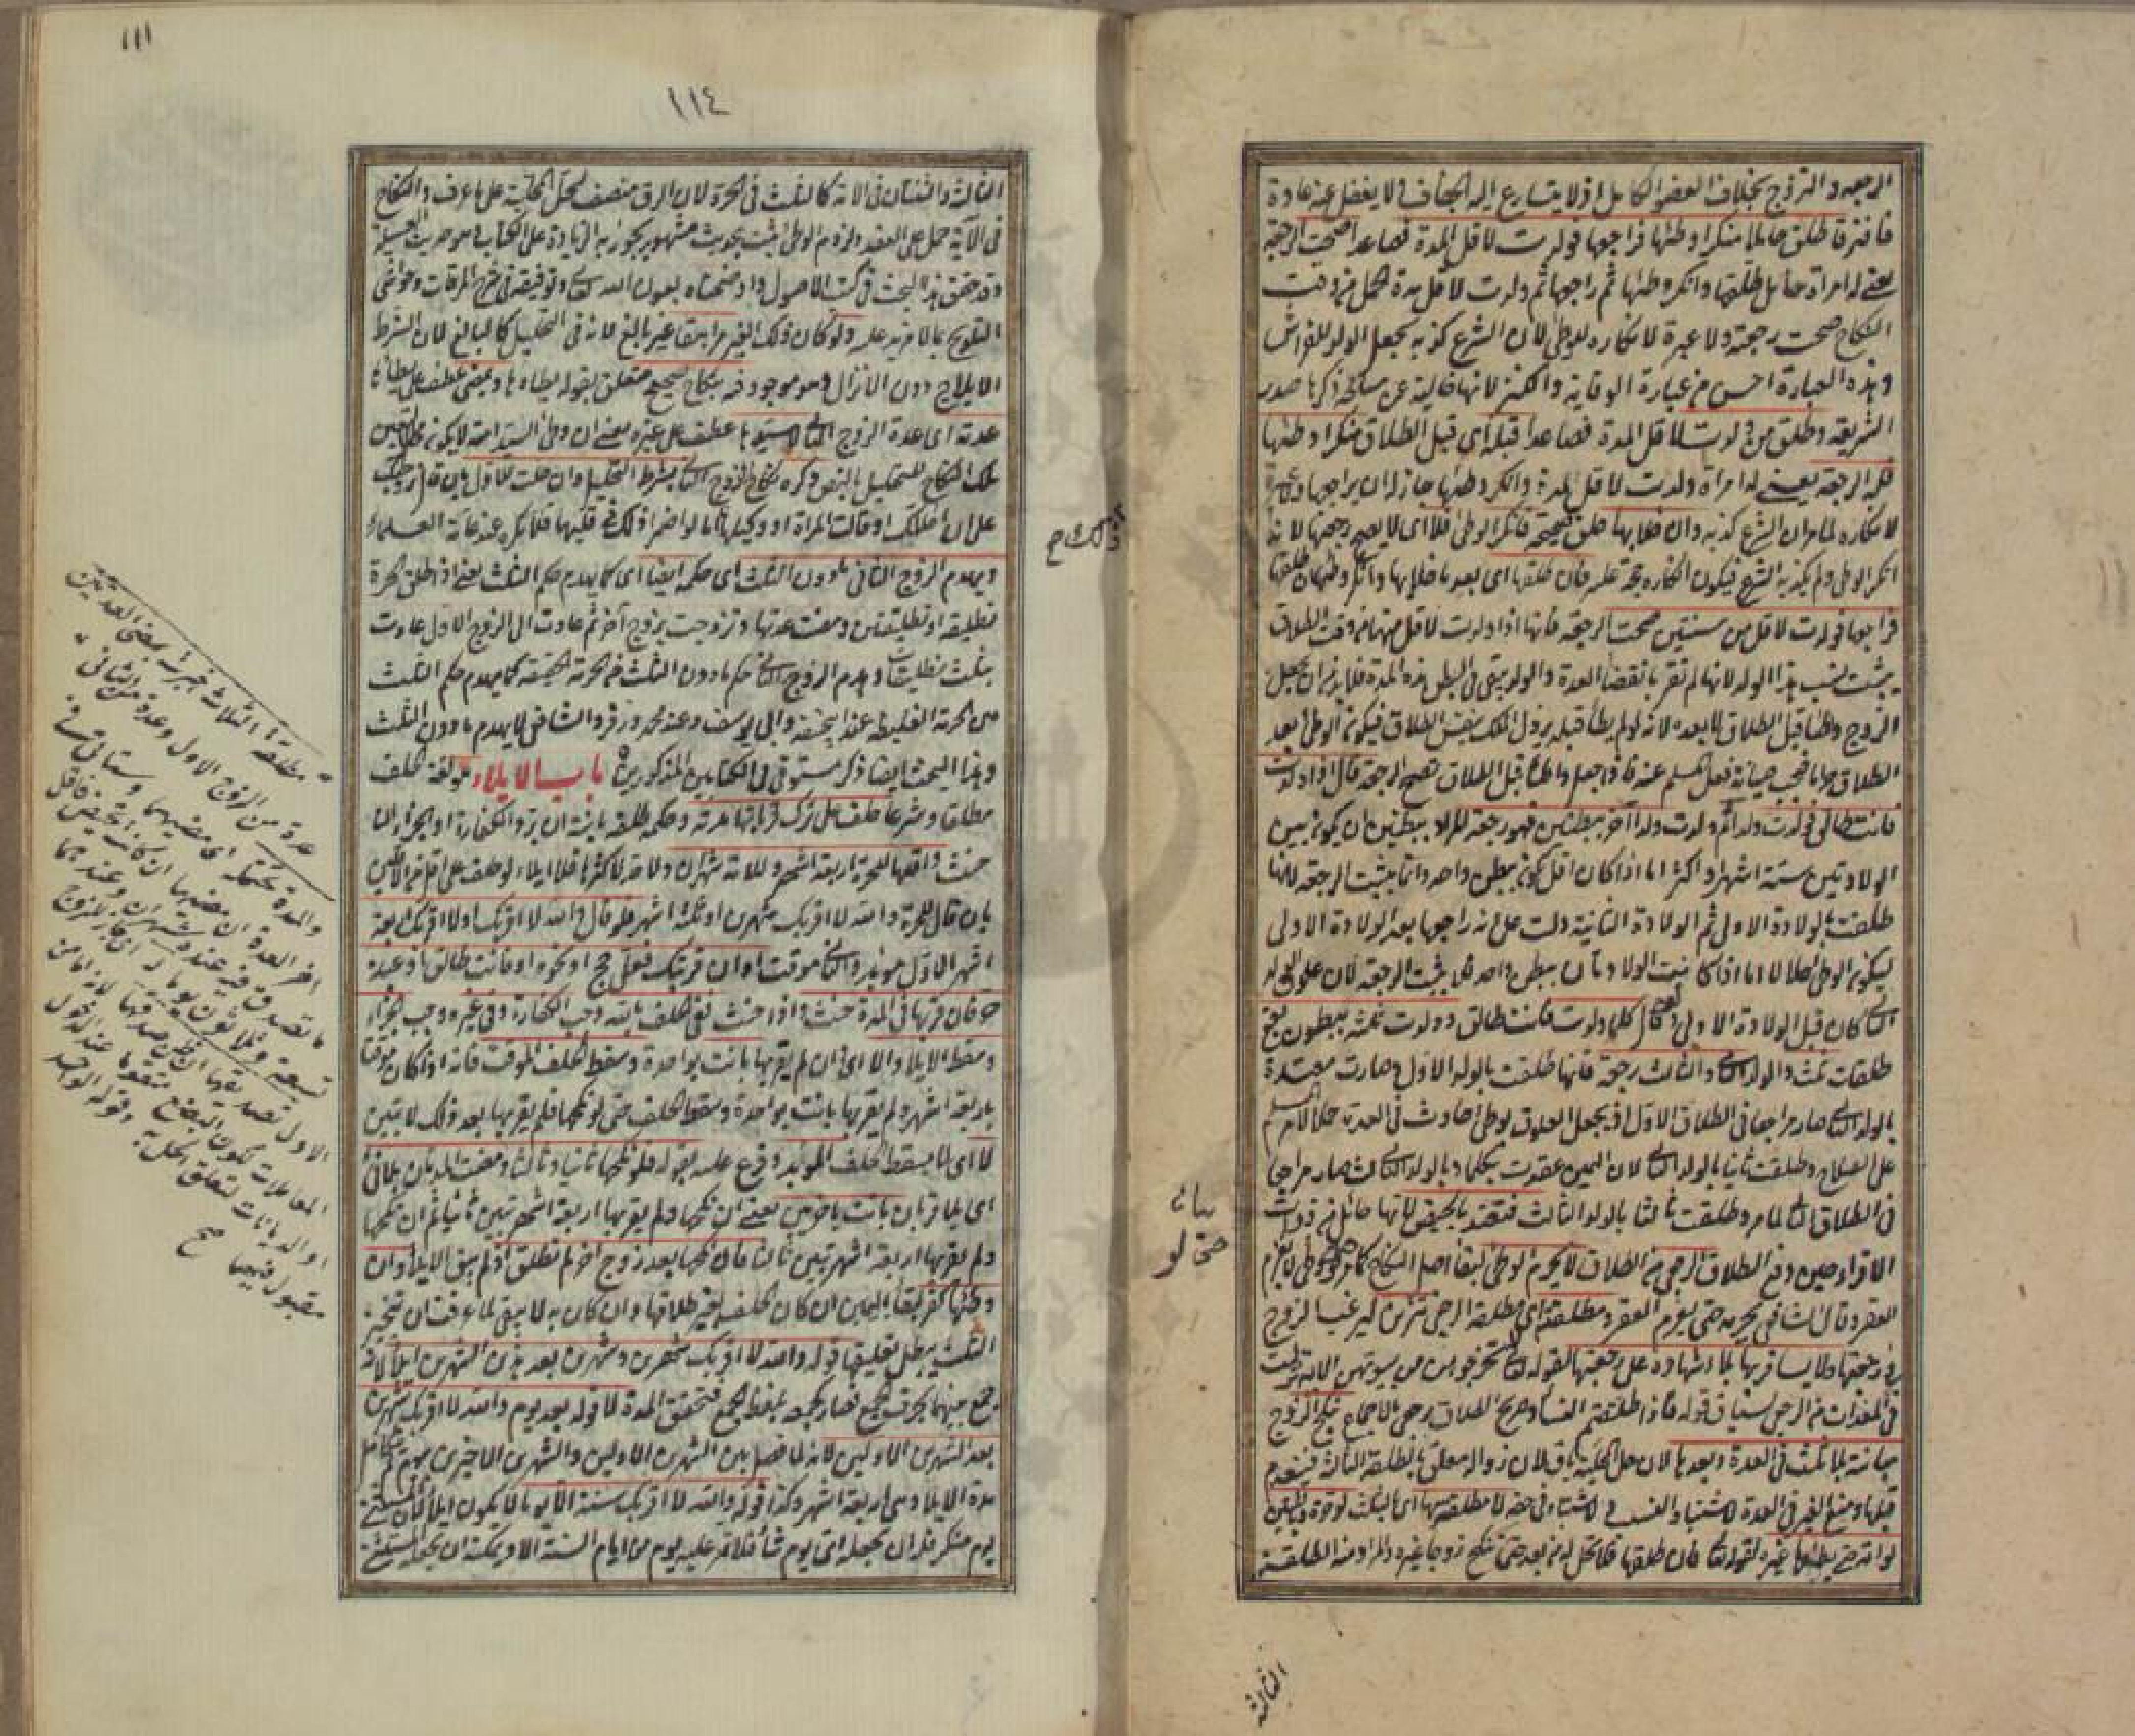 الرجعة والتزوج بخلاف العضو الكامل اذ لا يتسارع اليه الجفاف ولا يغفل عنه عادة
فافترقا طلق حاملا منكرا وطئها فراجعها فولدت لاقل المدة فصاعدا صحت الرجعة
يعني له امرأة حامل طلقها وانكر وطئها ثم راجعها ثم ولدت لاقل مدة الحمل من وقت
النكاح صحت رجعته ولا عبرة لانكاره الوطئ لان الشرع كذبه بجعل الولد للفراش
وهذه العبارة احسن من عبارة الوقاية والكنز لانها خالية عن مسامحة ذكرها صدر
الشريعة وطلق من ولدت لاقل المدة فصاعدا قبله اى قبل الطلاق منكرا وطئها
فله الرجعة يعني له امرأة ولدت لاقل المدة وانكر وطئها جاز له ان يراجعها ولا عبرة
لانكاره لما مر ان الشرع كذبه وان خلا بها طلق صحيحة فانكر الوطئ فلا اى لا يصح رجعتها لانه
انكر الوطئ ولم يكذبه الشرع فيكون انكاره حجة عليه فان طلقها اى بعد ما خلا بها وانكر وطئها ان طلقها
فراجعها فولدت لاقل من سنتين صحت الرجعة فانها اذا ولدت لاقل منهما من وقت الطلاق
يثبت نسب هذا الولد لانها لم تقر بانقضاء العدة والولد يبقى في البطن هذه المدة فلا بد من ان يجعل
الزوج واطئا قبل الطلاق لا بعده لانه لو لم يطأ قبله يزول الملك بنفس الطلاق فيكون الوطئ بعد
الطلاق حراما فيجب صيانة فعل المسلم عنه فاذا جعل واطئا قبل الطلاق تصح الرجعة قال اذا ولدت
فانت طالق فولدت ولدا ثم ولدت ولدا آخر ببطنين فهو رجعة المراد ببطنين ان يكون بين
الولادتين ستة اشهر او اكثر اما اذا كان اقل يكون ببطن واحد وانما يثبت الرجعة لانها
طلقت بالولادة الاولى ثم الولادة الثانية دلت على انه راجعها بعد الولادة الاولى
ليكون الوطئ حلالا اما اذا كانت الولادتان ببطن واحد فلا يثبت الرجعة لان علوق الولد
الثاني كان قبل الولادة الاولى قال كلما ولدت فانت طالق فولدت ثلثة ببطون يقع
طلقات ثلث والولد الثاني والثالث رجعة فانها طلقت بالولد الاول وصارت معتدة
بالولد الثاني صار مراجعا في الطلاق الاول اذ يجعل العلوق بوطئ حادث في العدة حملا لامر المسلم
على الصلاح وطلقت ثانيا بالولد الثاني لان اليمين عقدت بكلما وبالولد الثالث صار مراجعا
في الطلاق الثاني لما مر وطلقت ثالثا بالولد الثالث فتعتد بالحيض لانها حائل من ذوات
الاقراء حين وقع الطلاق الرجعي من الطلاق لا يحرم الوطئ لبقاء اصل النكاح كما مر حتى لو وطئ لا يغرم
العقر وقال الشافعي يحرمه حتى يغرم العقر ومطلقته اى مطلقة الرجعي تتزين ليرغب الزوج
في رجعتها ولا يسافر بها بلا اشهاده على رجعتها لقوله تعالى لا تخرجوهن من بيوتهن الاية نزلت
في المعتدات من الرجعي لسياق قوله فاذا طلقتم النساء وصريح الطلاق رجعي بالاجماع ينكح الزوج
مبانته بلا ثلث في العدة وبعدها لان حل المحلية باق لان زواله معلق بالطلقة الثالثة فينعدم
قبلها ومنع الغير في العدة لاشتباه النسب ولا اشتباه في حقه لا مطلقته بها اى بالثلث لو حرة وبالثنتين
لو امة حتى يطأها غيره لقوله تعالى فان طلقها فلا تحل له من بعد حتى تنكح زوجا غيره والمراد منه الطلقة
بيان
حتى لو
الثالثة
١١١
١١٤
الثالثة والثنتان في الامة كالثلث في الحرة لان الرق منصف لحل المحلية على ما عرف والنكاح
في الآية حمل على العقد ولزوم الوطئ ثبت بحديث مشهور يجوز به الزيادة على الكتاب وهو حديث العسيلة
وقد حقق هذا البحث في كتب الاصول واوضحناه بعون الله تعالى وتوفيقه في شرح المرقات وحواشي
التلويح بما لا مزيد عليه ولو كان ذلك الغير مراهقا غير بالغ لانه في التحليل كالبالغ لان الشرط
الايلاج دون الانزال وهو موجود فيه بنكاح صحيح متعلق بقوله يطأها وبمضى عطف على يطأها
عدته اى عدة الزوج الثاني لا سيدها عطف على غيره يعني ان وطئ السيد امته لا يكون
ملك النكاح للتحليل بالنص وكره نكاح الزوج الثاني بشرط التحليل وان حلت للاول بان قال تزوجتك
على ان احللك او قالت المرأة او وكيلها اما لو اضمرا ذلك في قلبهما فلا يكره عند عامة العلماء
ويهدم الزوج الثاني ما دون الثلث اى حكمه ايضا اى كما يهدم حكم الثلث يعني اذا طلق الحرة
تطليقة او تطليقتين ومضت عدتها وتزوجت بزوج آخر ثم عادت الى الزوج الاول عادت
بثلث تطليقات ويهدم الزوج الثاني حكم ما دون الثلث من الحرمة الخفيفة كما يهدم حكم الثلث
من الحرمة الغليظة عند ابي حنيفة وابي يوسف وعند محمد وزفر والشافعي لا يهدم ما دون الثلث
وهذا البحث ايضا ذكر مستوفى في الكتابين المذكورين باب الايلاء هو لغة الحلف
مطلقا وشرعا حلف على ترك قربانها مدته وحكمه طلقة بائنة ان بر والكفارة او الجزاء ان
حنث واقلها للحرة اربعة اشهر وللامة شهران ولا حد لاكثرها فلا ايلاء لو حلف على اقل من الاقلين
بان قال للحرة والله لا اقربك شهرين او ثلثة اشهر فلو قال والله لا اقربك او لا اقربك اربعة
اشهر الاول مؤبد والثاني موقت او ان قربتك فعلي حج او نحوه او فانت طالق او عبده
حر فان قربها في المدة حنث واذا حنث ففي الحلف بالله وجب الكفارة وفي غيره وجب الجزاء
وسقط الايلاء والا اى ان لم يقربها بانت بواحدة وسقط الحلف الموقت فانه اذا كان موقتا
باربعة اشهر ولم يقربها بانت بواحدة وسقط الحلف حتى لو نكحها فلم يقربها بعد ذلك لا تبين
لا اى لا يسقط الحلف المؤبد وفرع عليه بقوله فلو نكحها ثانيا وثالثا ومضت المدتان بلا فئ
اى بلا قربان بانت باخريين يعني ان نكحها ولم يقربها اربعة اشهر تبين ثانيا ثم ان نكحها
ولم يقربها اربعة اشهر تبين ثالثا فان نكحها بعد زوج آخر لم تطلق اذ لم يبق الايلاء وان
وطئها كفر لبقاء اليمين ان كان الحلف بغير طلاقها وان كان به لا يبقى لما عرفت ان تنجيز
الثلث يبطل تعليقها قوله والله لا اقربك شهرين وشهرين بعد هذين الشهرين ايلاء لانه
جمع بينهما بحرف الجمع فصار كجمعه بلفظ الجمع فتحقق المدة لا قوله بعد يوم والله لا اقربك شهرين
بعد الشهرين الاولين لانه لما فصل بين الشهرين الاولين والشهرين الاخيرين بيوم لم تتكامل
مدة الايلاء وهي اربعة اشهر وكذا قوله والله لا اقربك سنة الا يوما لا يكون ايلاء لان المستثنى
يوم منكر فله ان يجعله اى يوم شاء فلا تمر عليه يوم من ايام السنة الا ويمكنه ان يجعله المستثنى
ذلك صح
مطلقة الثلاث اخبرت بمضى العدتين
عدة من الزوج الاول وعدة من الثاني
والمدة تحتمله اى مضيهما وستأتي في
اخر العدة ان مضيها ان كانت بالحيض فاقل
ما تصدق فيه عنده شهران وعندهما
تسعة وثلاثون يوما له اى جاز للزوج
الاول تصديقها ان ظن صدقها لانه اما من
المعاملات لكون البضع متقوما عند الدخول
او الديانات لتعلق الحل به وقول الواحد
مقبول فيهما صح